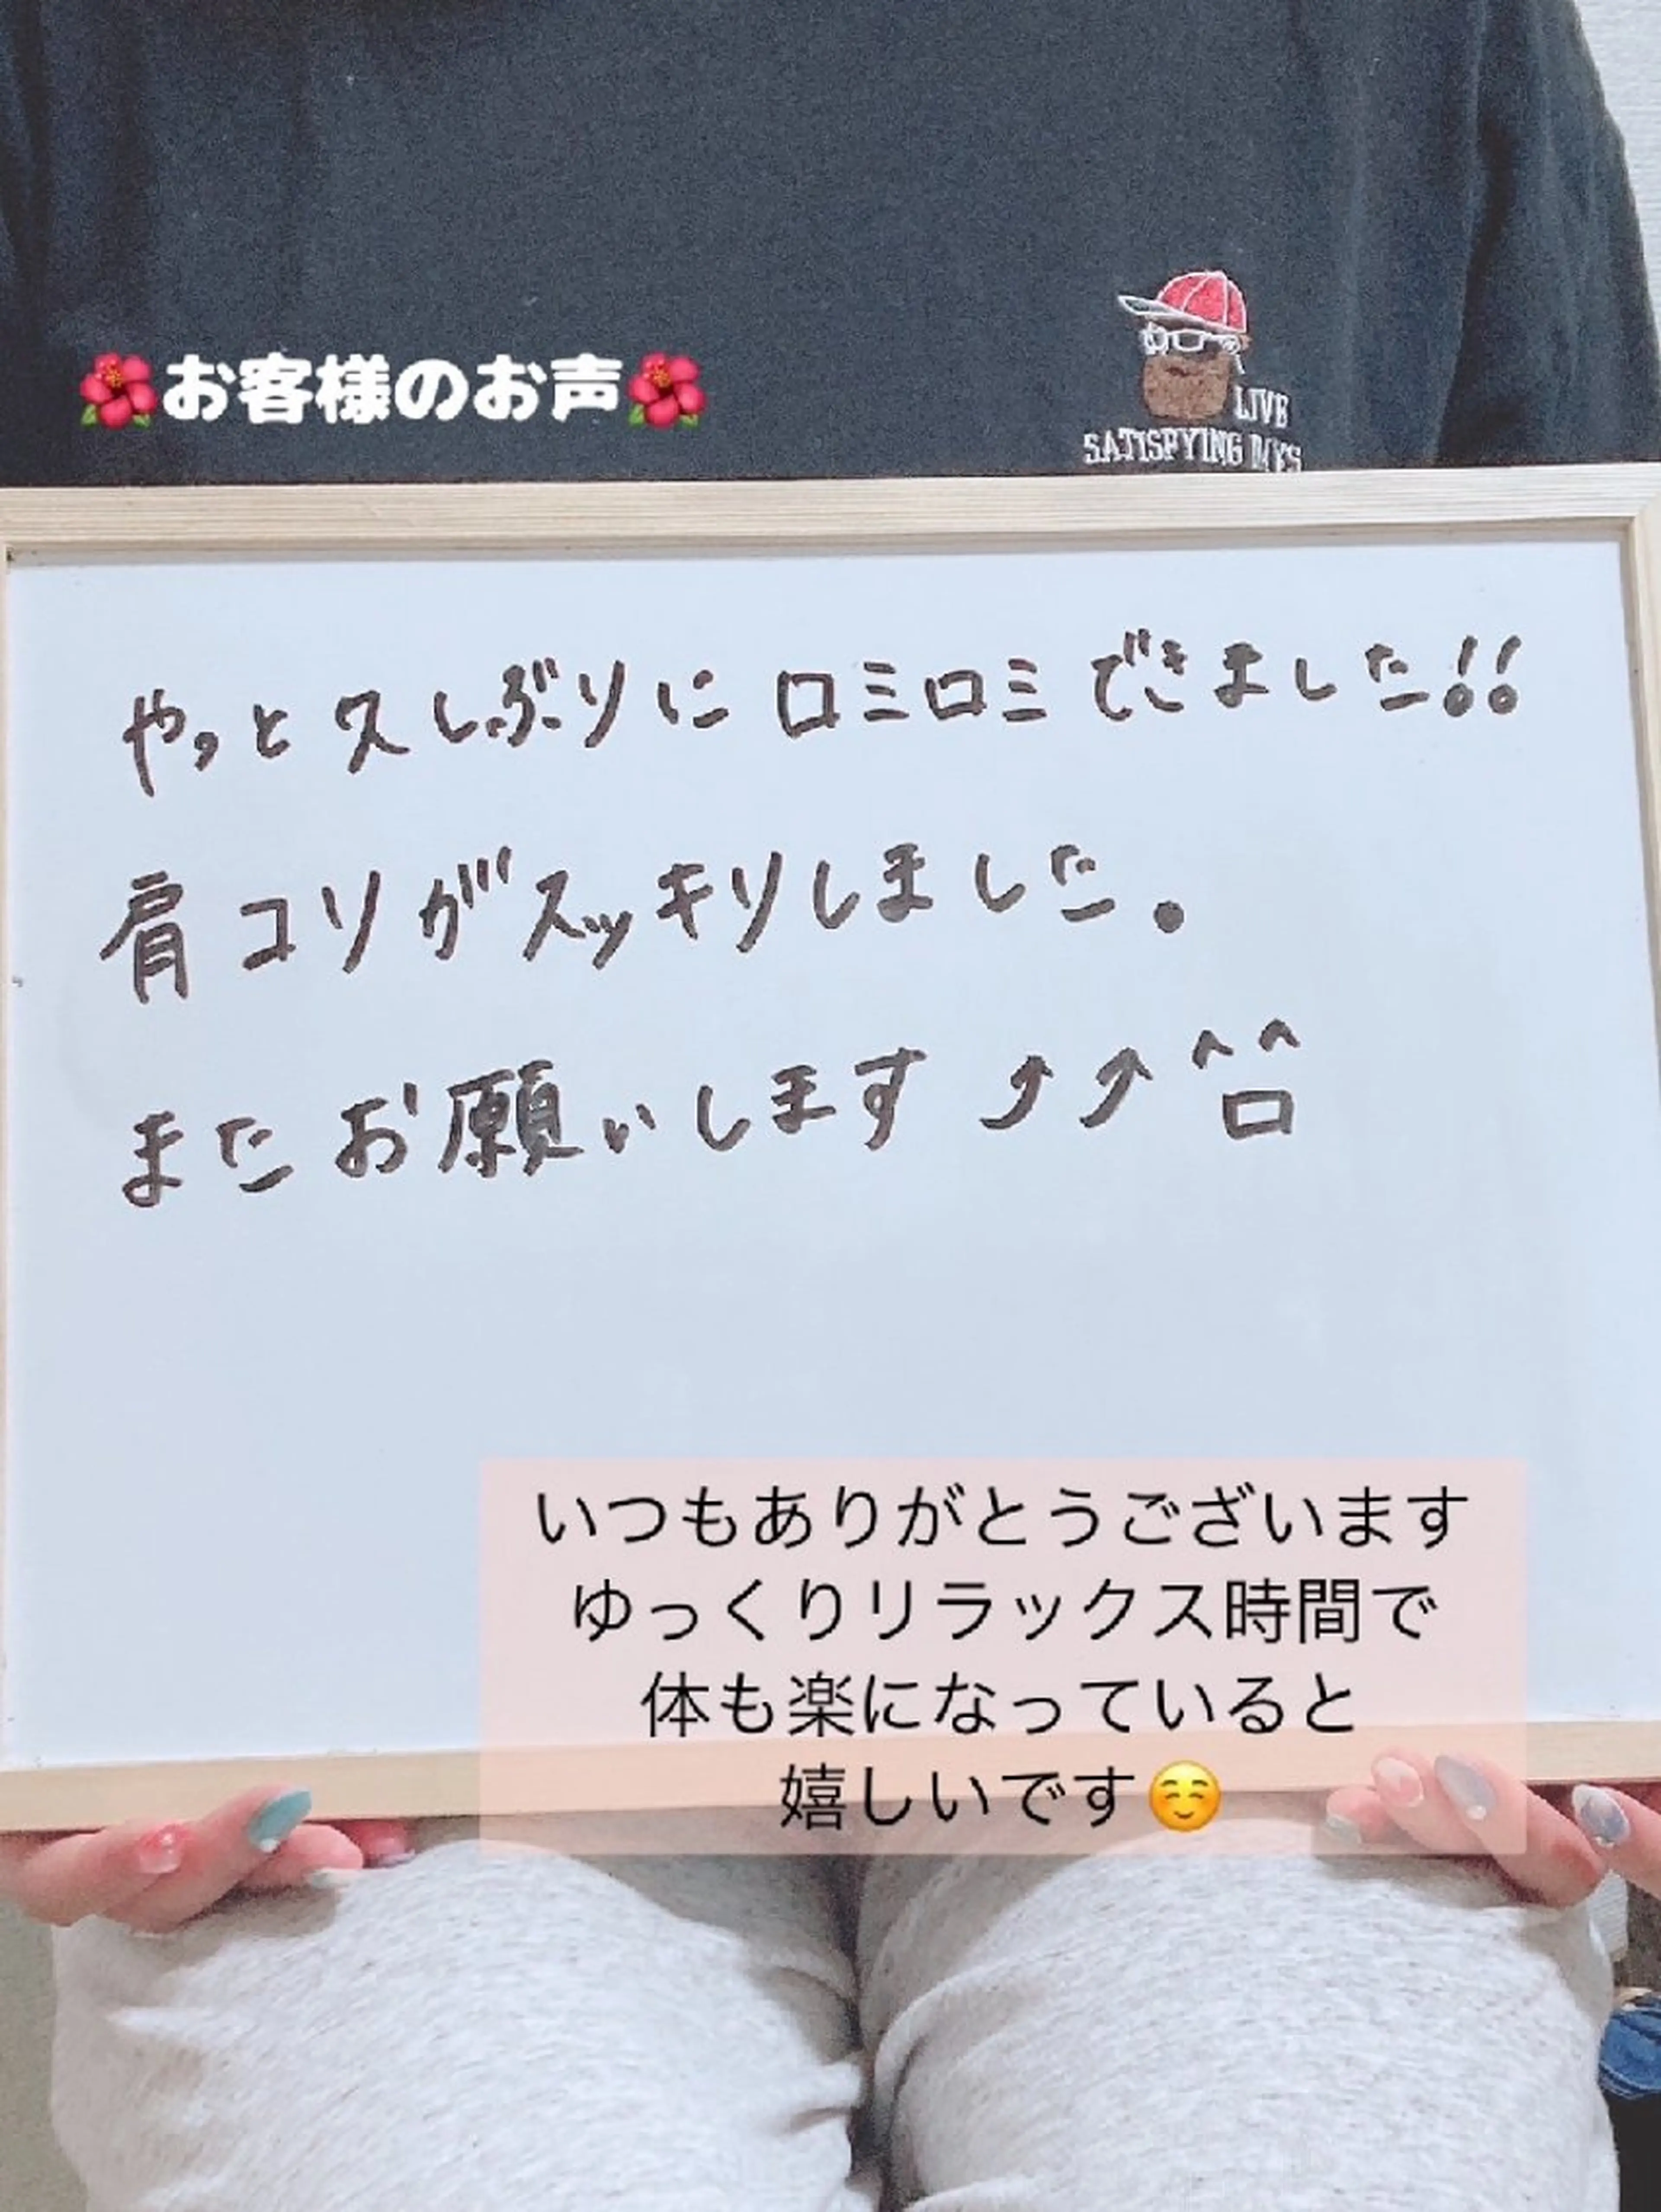 🌺お客様のお声🌺
LIVE
SATISPYING DAYS
やっと久しぶりにロミロミできました!!
肩コリがスッキリしました。
またお願いします⤴⤴^ロ^
いつもありがとうございます
ゆっくりリラックス時間で
体も楽になっていると
嬉しいです☺️